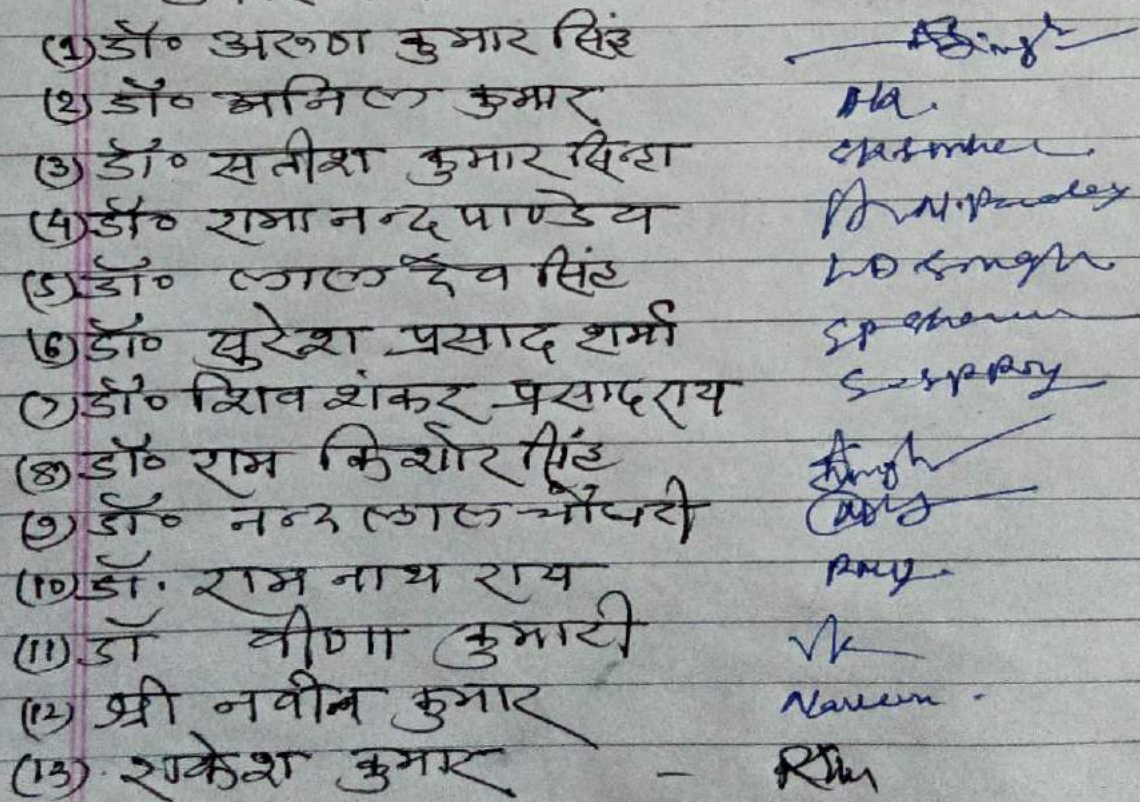 (1) डॉ० अरुण कुमार सिंह
(2) डॉ० अनिल कुमार
(3) डॉ० सतीश कुमार सिन्हा
(4) डॉ० रामानन्द पाण्डेय N. Pandey
(5) डॉ० लाल देव सिंह LD Singh
(6) डॉ० सुरेश प्रसाद शर्मा SP Sharma
(7) डॉ० शिव शंकर प्रसाद राय S-SPRoy
(8) डॉ० राम किशोर सिंह
(9) डॉ० नन्द लाल चौधरी
(10) डॉ. राम नाथ राय
(11) डॉ वीणा कुमारी VK
(12) श्री नवीन कुमार Naveen
(13) राकेश कुमार -